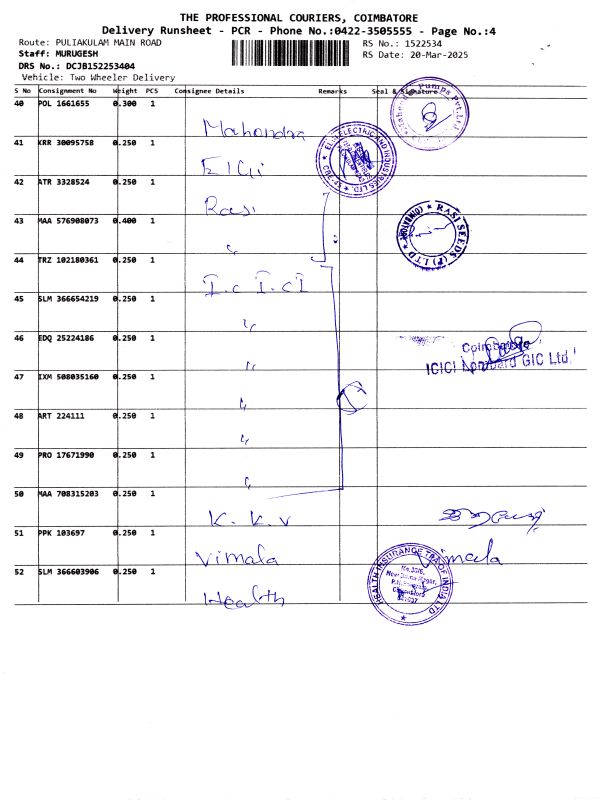 THE PROFESSIONAL COURIERS, COIMBATORE
Delivery Runsheet - PCR - Phone No.:0422-3505555 - Page No.:4
Route: PULIAKULAM MAIN ROAD RS No.: 1522534
Staff: MURUGESH RS Date: 20-Mar-2025
DRS No.: DCJB152253404
Vehicle: Two Wheeler Delivery
S No Consignment No Weight PCS Consignee Details Remarks Seal & Signature
40 POL 1661655 0.300 1
Mahendra
41 KRR 30095758 0.250 1
ELGi
42 ATR 3328524 0.250 1
Rasi
RASI SEEDS (P) LTD
43 MAA 576908073 0.400 1
"
44 TRZ 102180361 0.250 1
I.C I.C I
45 SLM 366654219 0.250 1
"
46 EDQ 25224186 0.250 1
Coimbatore
ICICI Lombard GIC Ltd.
"
47 IXM 508035160 0.250 1
"
48 ART 224111 0.250 1
"
49 PRO 17671990 0.250 1
"
50 MAA 708315203 0.250 1
K. K. V
51 PPK 103697 0.250 1
Vimala Vimala
52 SLM 366603906 0.250 1
HEALTH INSURANCE TPA OF INDIA LTD
Health